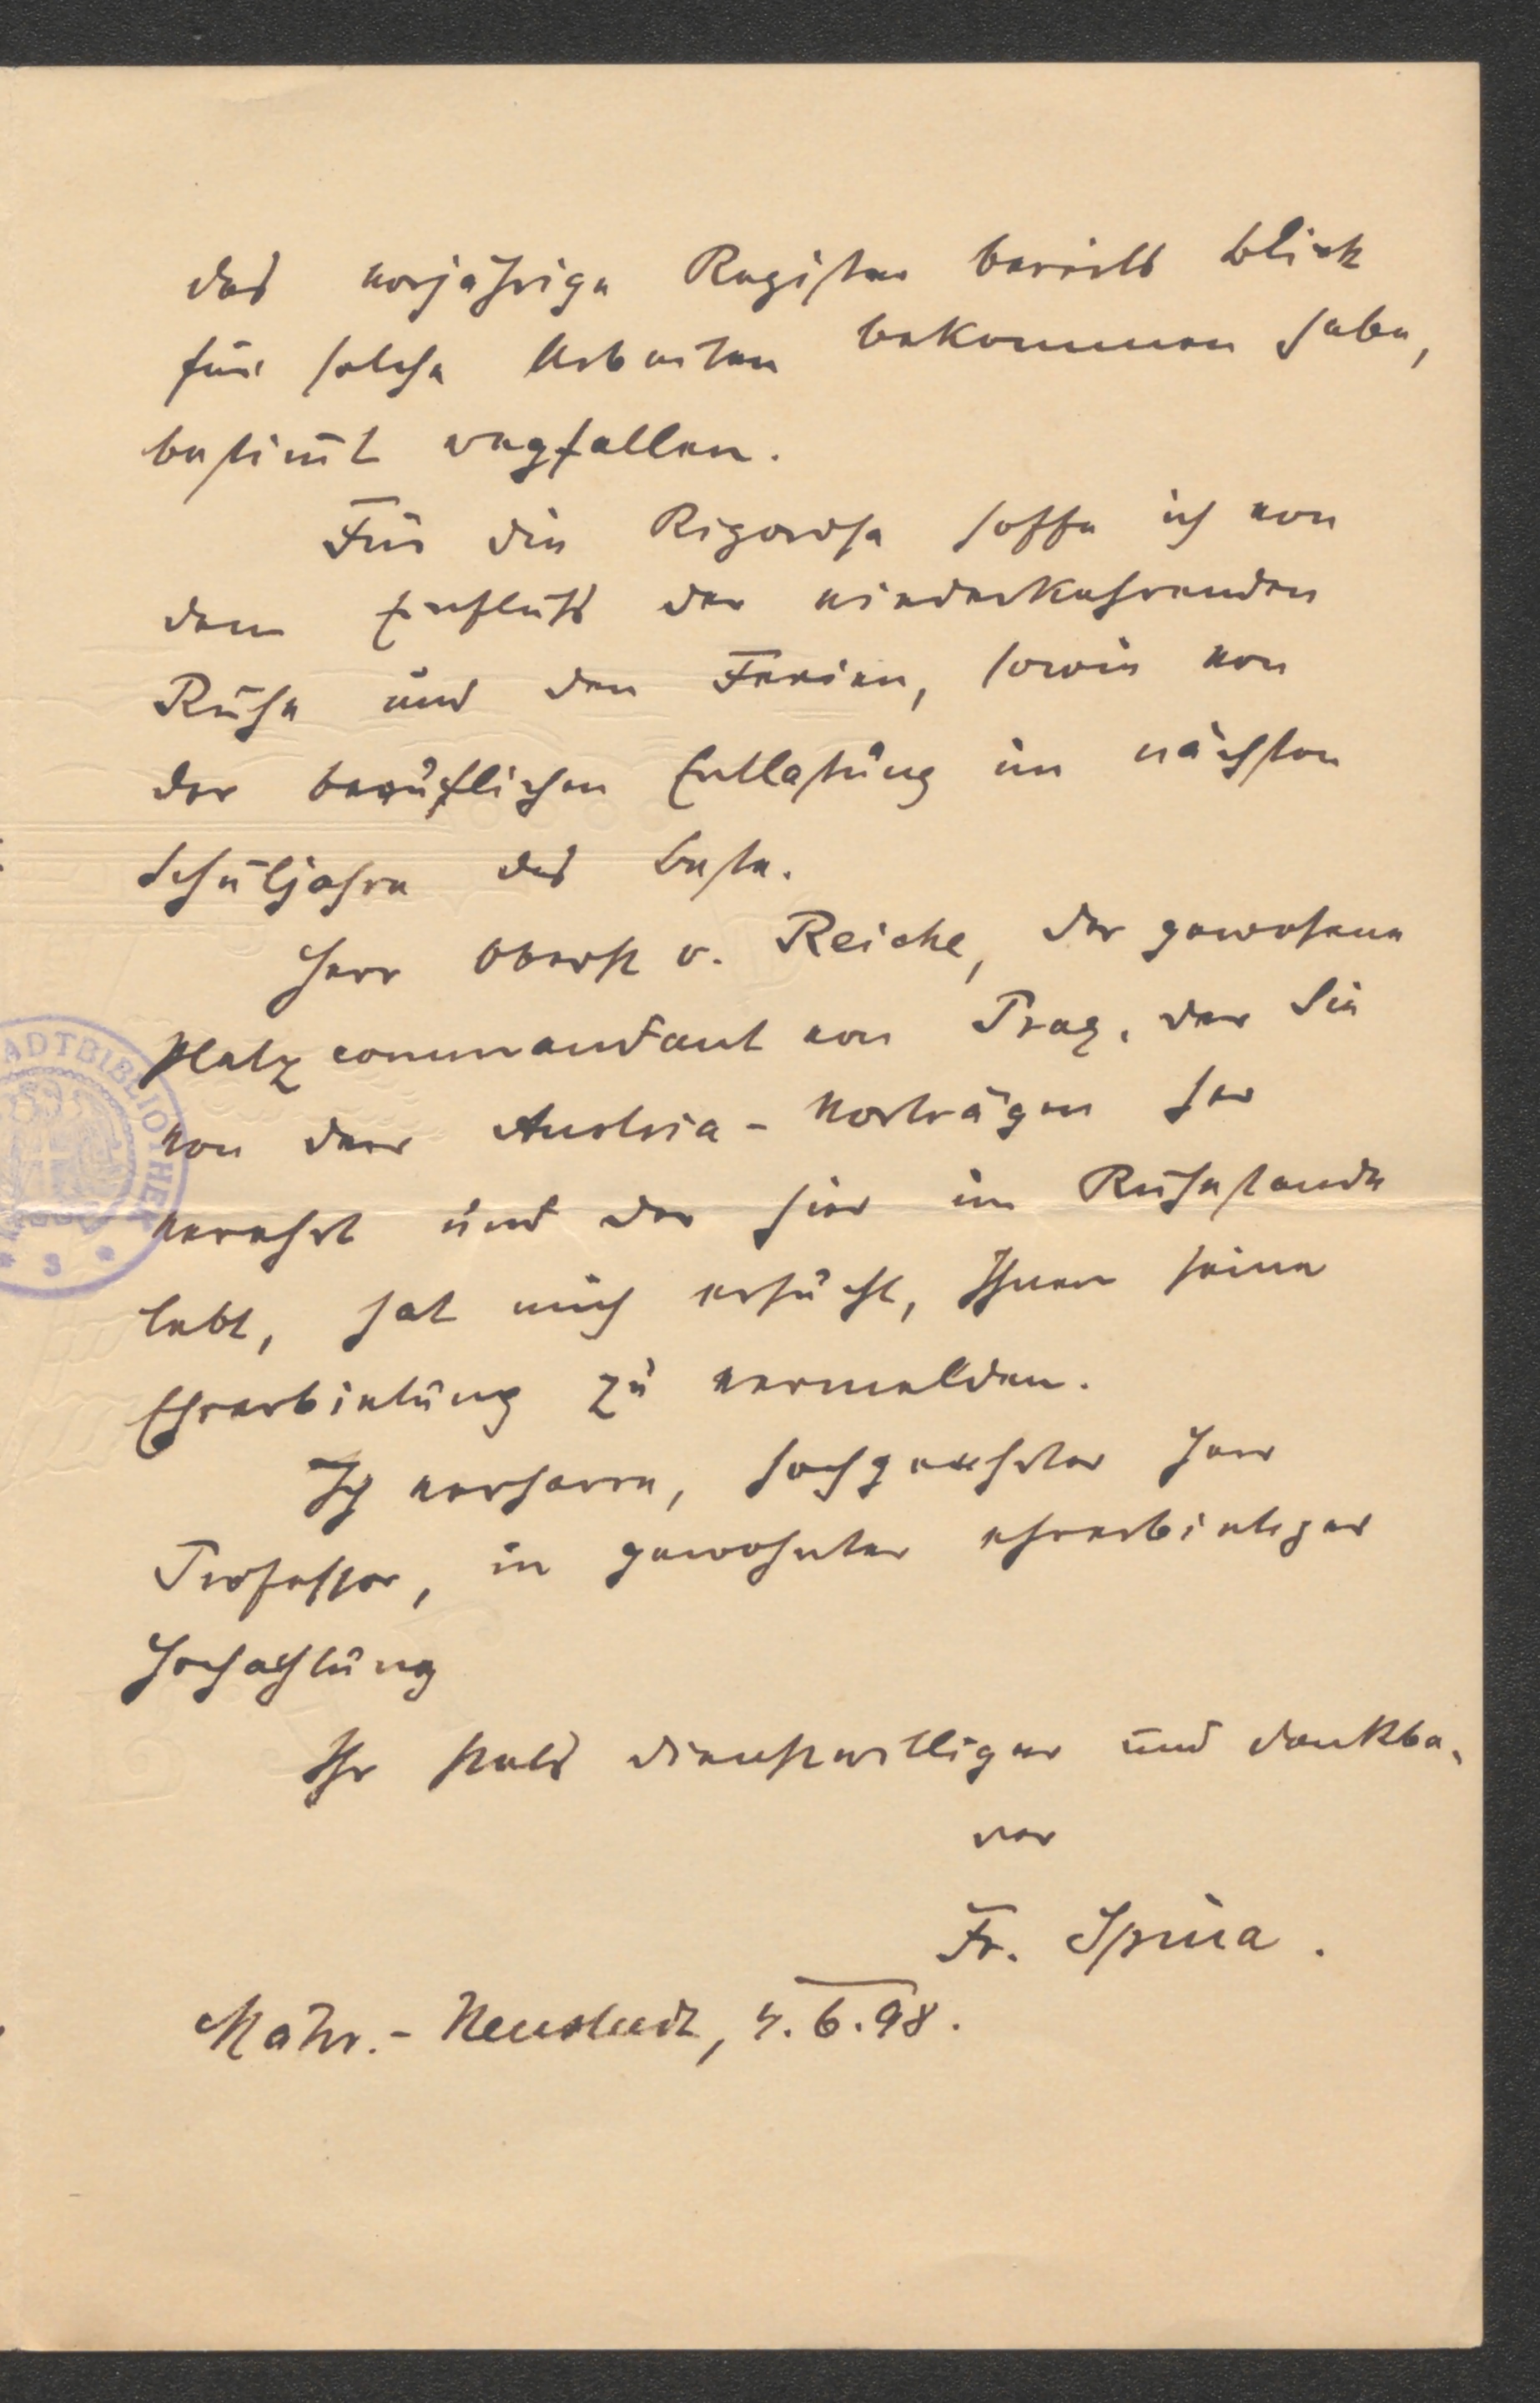 das vorjährige Register bereits Blick
für solche Arbeiten bekommen habe,
bestim̄t wegfallen.
Für die Rigorosa hoffe ich von
dem Einfluß der wiederkehrenden
Ruhe und den Ferien, sowie von
der beruflichen Entlastung im nächsten
Schuljahre das Beste.
Herr Oberst v. Reiche, der gewesene
Platzcommandant von Prag, der Sie
von den Austria-Vorträgen her
verehrt und der hier im Ruhestande
lebt, hat mich ersucht, Ihnen seine
Ehrerbietung zu vermelden.
Ich verharre, hochgeehrter Herr
Professor, in gewohnter ehrerbietiger
Hochachtung
Ihr stets dienstwilliger und dankba-
rer
Fr. Spina.
Mähr.-Neustadt, 4.6.98.
ADTBIBLIOTHEK